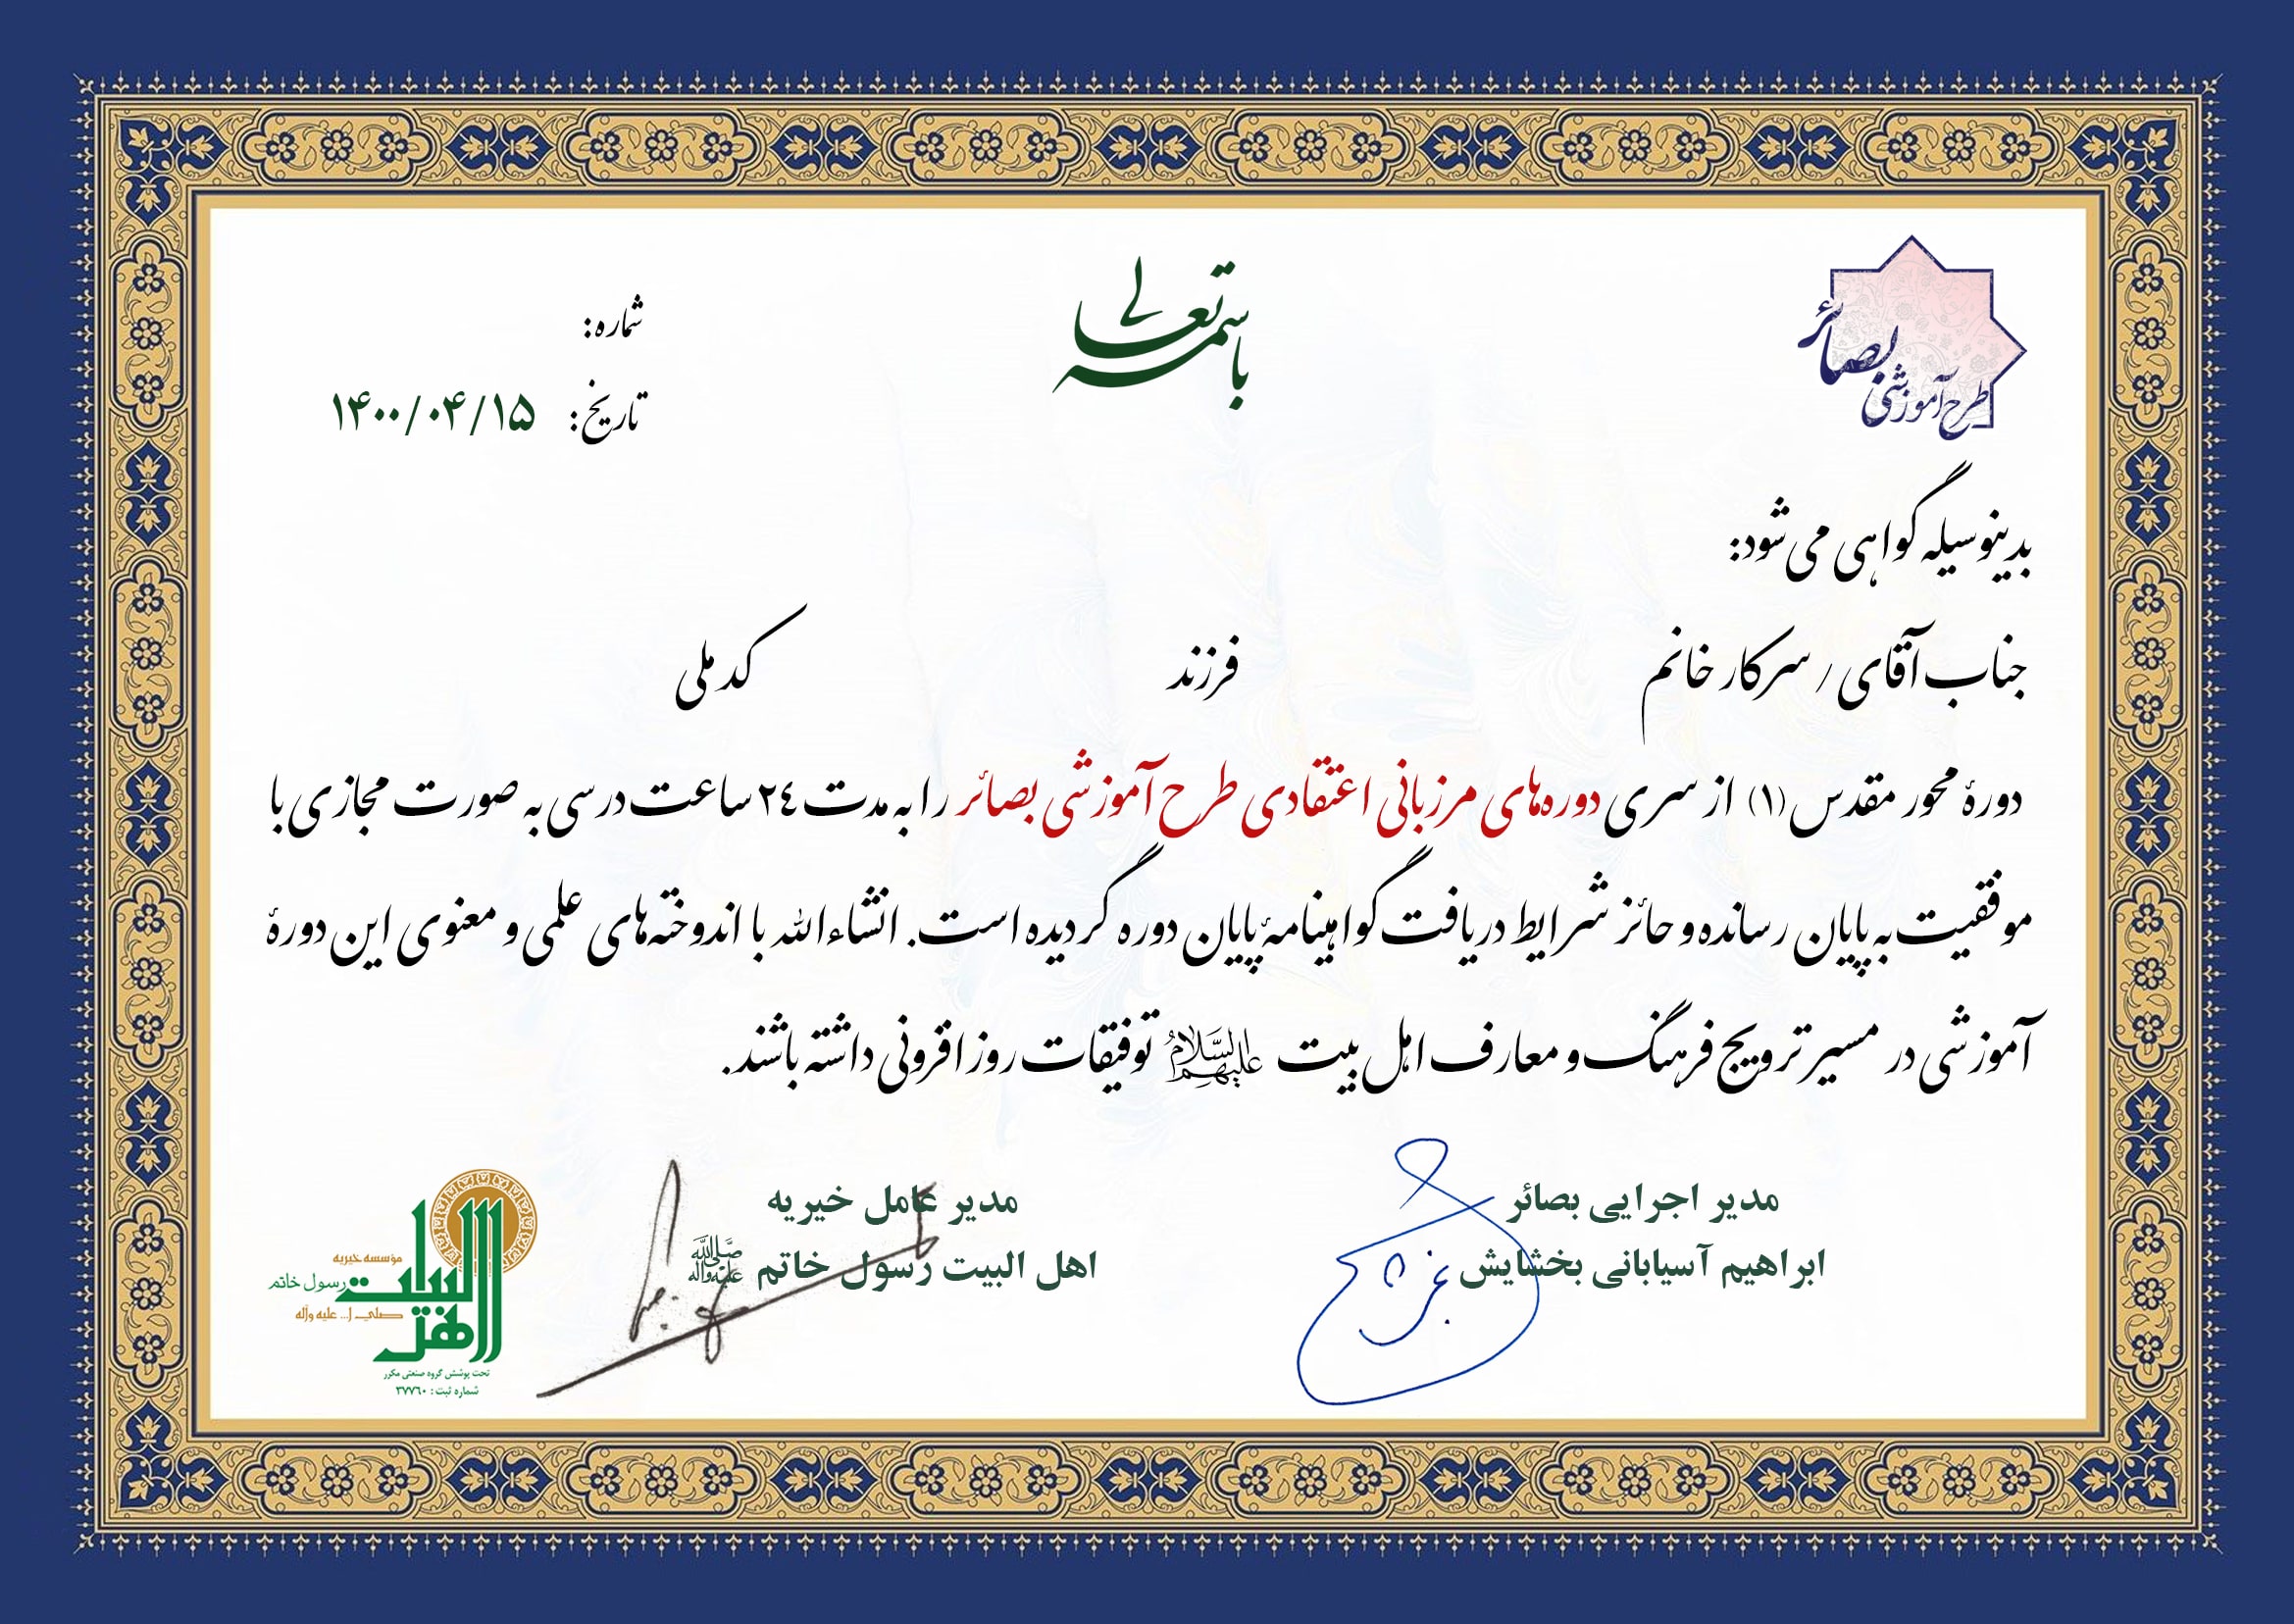 باسمه تعالی
طرح آموزشی بصائر
شماره:
تاریخ: ۱۴۰۰/۰۴/۱۵
بدینوسیله گواهی می شود:
جناب آقای / سرکار خانم فرزند کد ملی
دورهٔ محور مقدس (۱) از سری دوره‌های مرزبانی اعتقادی طرح آموزشی بصائر را به مدت ۲٤ ساعت درسی به صورت مجازی با
موفقیت به پایان رسانده و حائز شرایط دریافت گواهینامهٔ پایان دوره گردیده است. انشاءالله با اندوخته‌های علمی و معنوی این دورهٔ
آموزشی در مسیر ترویج فرهنگ و معارف اهل بیت علیهم السلام توفیقات روز افزونی داشته باشند.
مدیر اجرایی بصائر
ابراهیم آسیابانی بخشایش
مدیر عامل خیریه
اهل البیت رسول خاتم صلی الله علیه وآله
مؤسسه خیریه
اهل البیت
رسول خاتم
صلی ا... علیه وآله
تحت پوشش گروه صنعتی مکرر
شماره ثبت: ۳۷۷٦۰